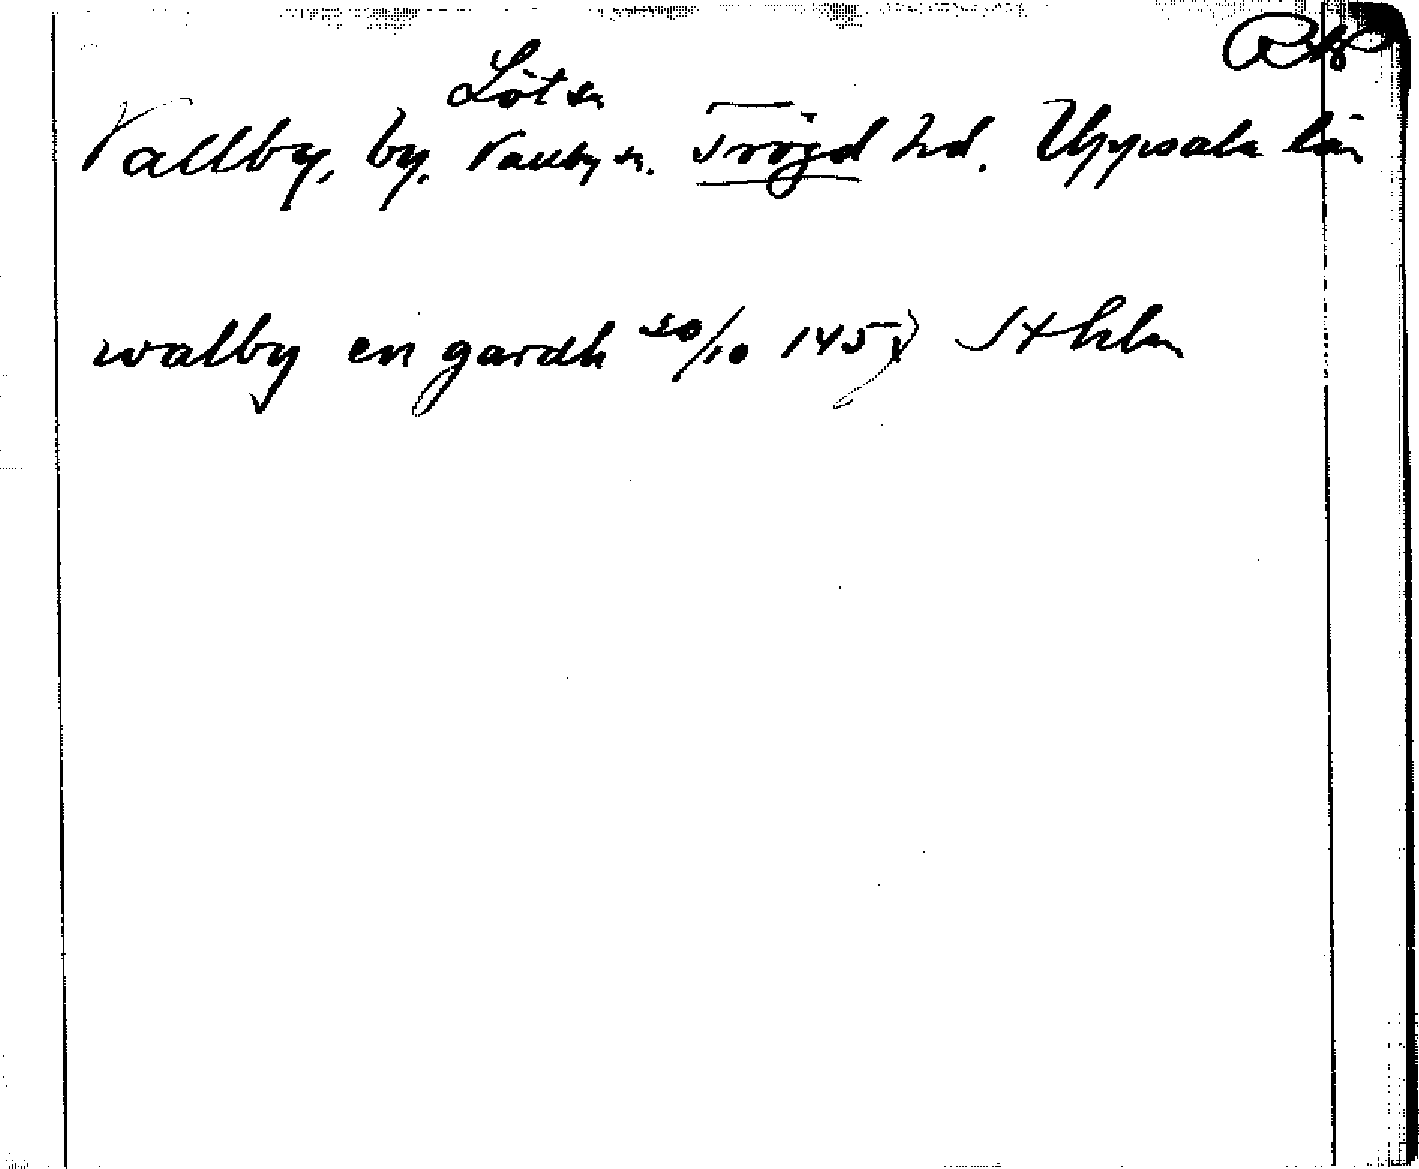 Löt sn
Vallby, by, Vallby sn. Trögd hd. Uppsala län
walby en gardh 30/10 1457 Sthlm